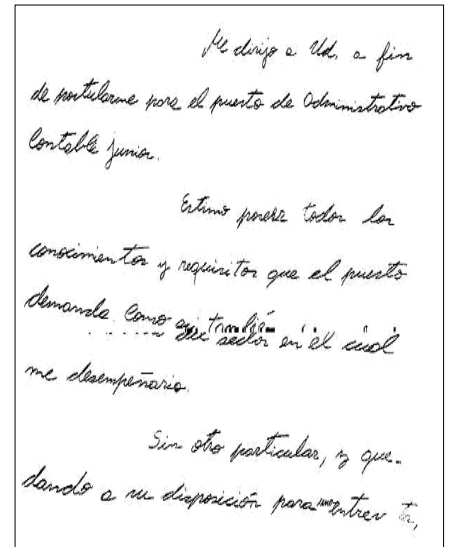 Me dirijo a Ud. a fin
de postularme para el puesto de Administrativo
Contable junior.
Estimo poseer todos los
conocimientos y requisitos que el puesto
demanda. Como así también
sector en el cual
me desempeñaria.
Sin otro particular, y que-
dando a su disposición para una